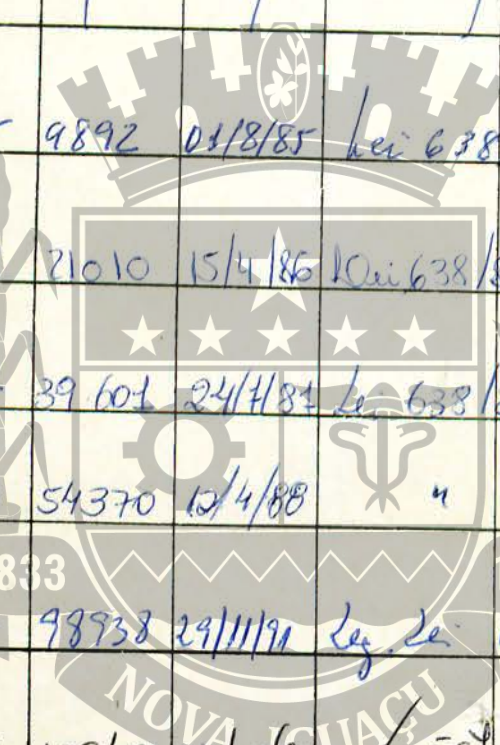 9892 01/8/85 Lei 638
21010 15/4/86 Lei 638/
39 601 24/7/87 Lei 638/
54370 12/4/88 "
833
98938 29/11/91 Leg. Lei
NOVA IGUAÇU